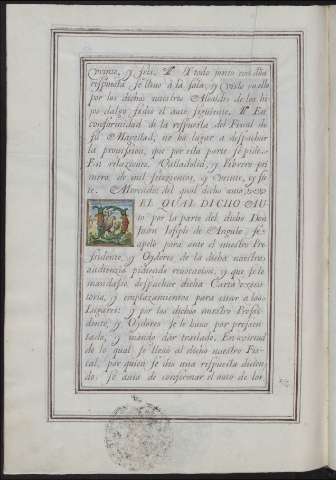 Veinte, y seis. Y todo junto con dha
respuesta se llevo à la sala, y visto en ella
por los dichos nuestros Alcaldes de los hi
jos dalgo, se dio el auto siguiente. En
conformidad de la respuesta del Fiscal de
su Magestad, no ha lugar a despachar
la provission, que por esta parte se pide.
En relaciones. Valladolid, y Febrero pri
mero de mil setecientos, y veinte, y sie
te. Mercado. del qual dicho auto,
EL QUAL DICHO AU-
to por la parte del dicho Don
Juan Joseph de Angulo, se a
pelò para ante el nuestro Pre
sidente, y Oydores de la dicha nuestra
audiencia pidiendo revocacion, y que se le
mandasse despachar dicha Carta execu
toria, y emplazamientos para citar a los
Lugares: y por los dichos nuestro Presi
dente, y Oydores se le huvo por presen
tado, y mando dar traslado. En virtud
de lo qual se llevò al dicho nuestro Fis-
cal, por quien se dio una respuesta dicien
do. Se avia de confirmar el auto de los